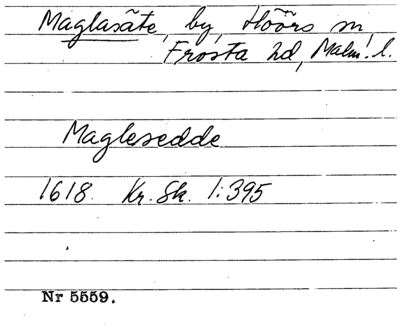 Maglasäte, by, Höörs sn,
Frosta hd, Malm. l.
Maglesedde
1618. Kr. Sk. 1:395
Nr 5559.